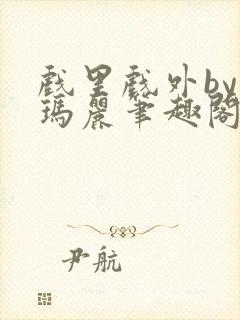 戲里戲外by
瑪麗筆趣閣
尹航